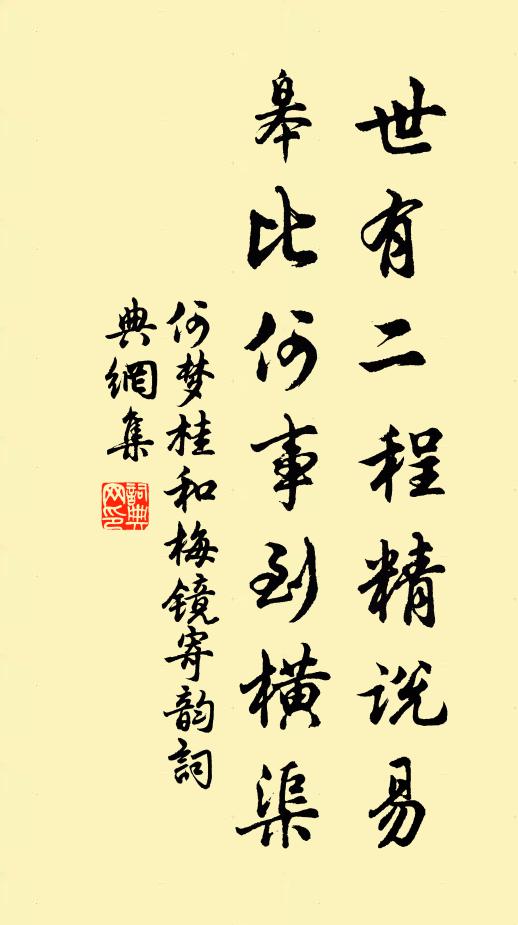 世有二程精说易
皋比何事到横渠
何梦桂和梅镜寄韵詞
典網集
詞典网印